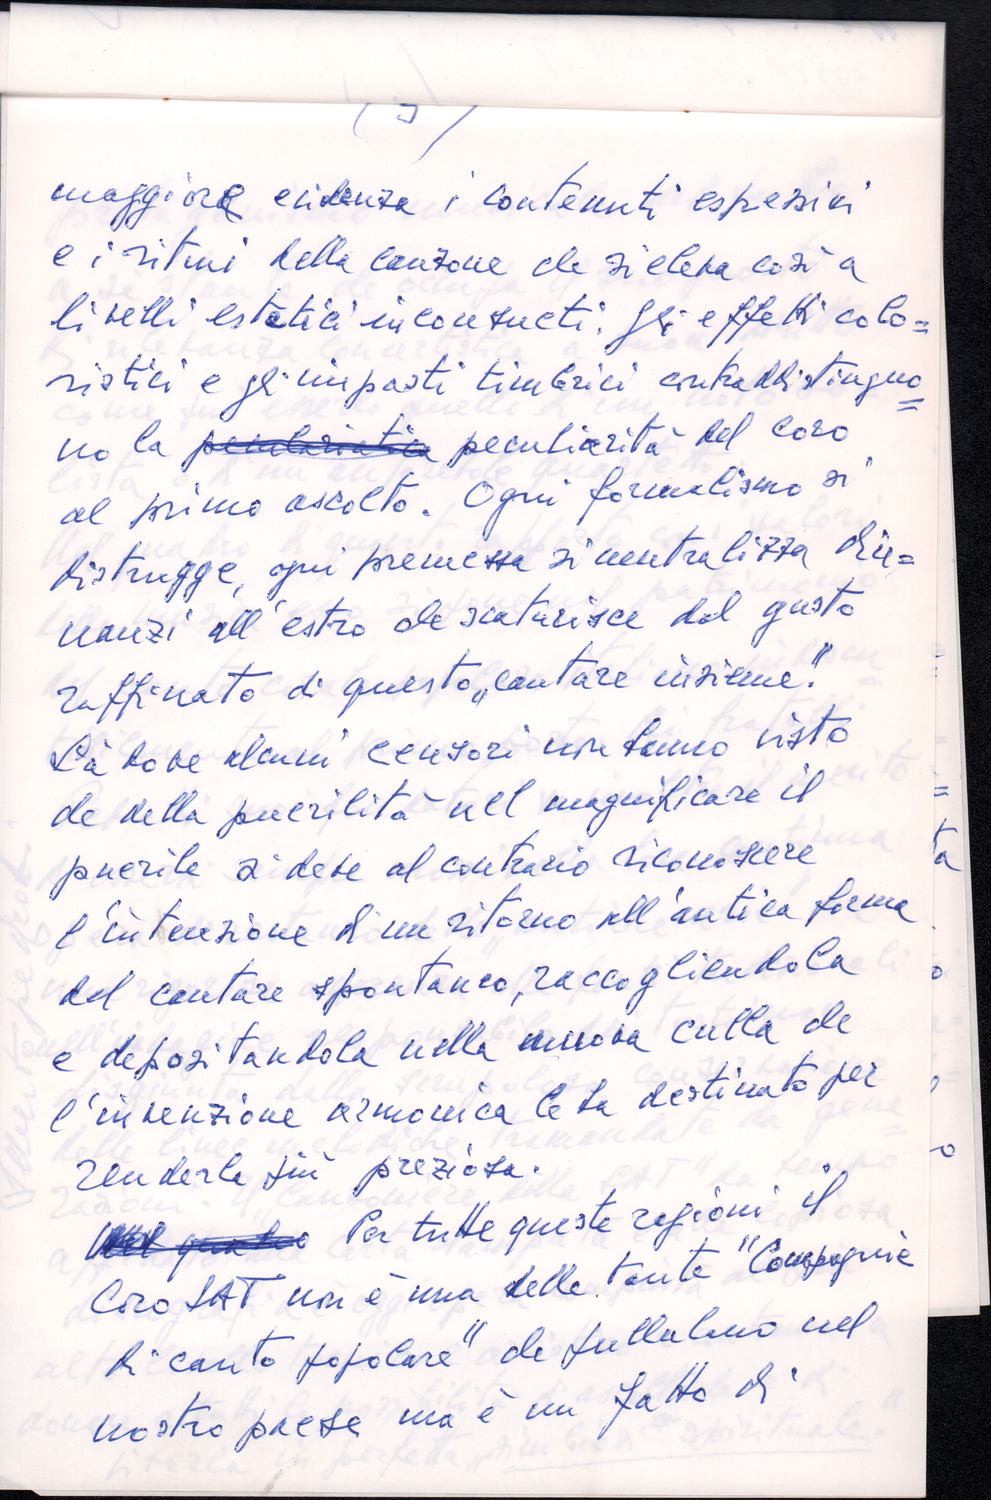 (3)
maggiore evidenza i contenuti espressivi
e i ritmi della canzone che si eleva così a
livelli estetici inconsueti. Gli effetti colo=
ristici e gli impasti timbrici contraddistinguo
=
no la peculiarità del coro
al primo ascolto. Ogni formalismo si
distrugge, ogni premessa si neutralizza din=
nanzi all'estro che scaturisce dal gusto
raffinato di questo „cantare insieme".
Là dove alcuni censori non hanno visto
che della puerilità nel magnificare il
puerile si deve al contrario riconoscere
l'intenzione di un ritorno all'antica forma
del cantare spontaneo, raccogliendola
e depositandola nella nuova culla che
l'invenzione armonica le ha destinato per
renderla più preziosa.
Per tutte queste ragioni il
Coro SAT non è una delle tante "Compagnie
di canto popolare" che pullulano nel
nostro paese ma è un fatto di